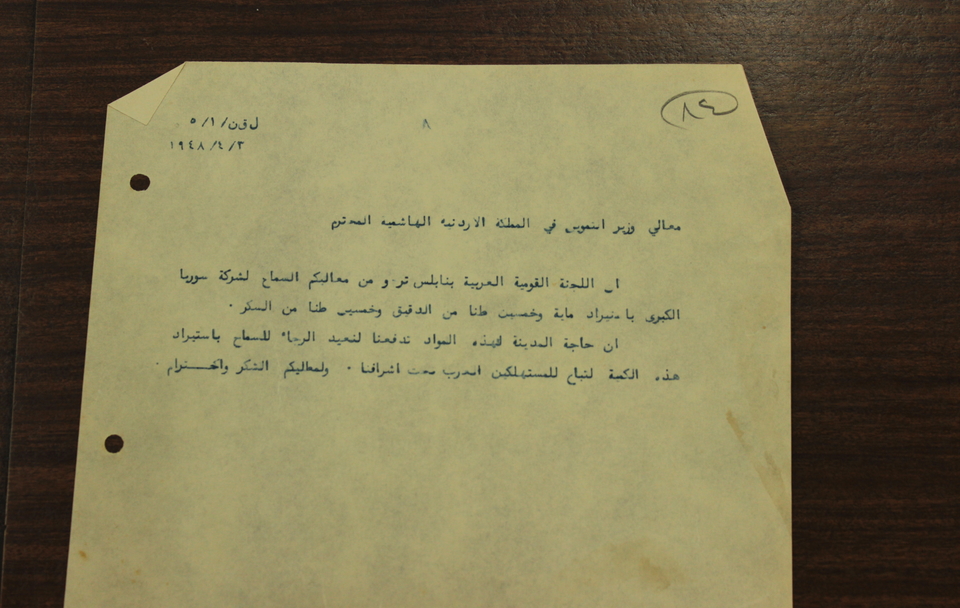 ٨٤
٨
ل ق ن/ ١/ ٥
١٩٤٨/٤/٣
معالي وزير التموين في المملكة الاردنية الهاشمية المحترم
ان اللجنة القومية العربية بنابلس ترجو من معاليكم السماح لشركة سوريا
الكبرى باستيراد ماية وخمسين طنا من الدقيق وخمسين طنا من السكر ٠
ان حاجة المدينة لهذه المواد تدفعنا لنعيد الرجاء للسماح باستيراد
هذه الكمية لتباع للمستهلكين العرب تحت اشرافنا ٠ ولمعاليكم الشكر والاحترام ٠